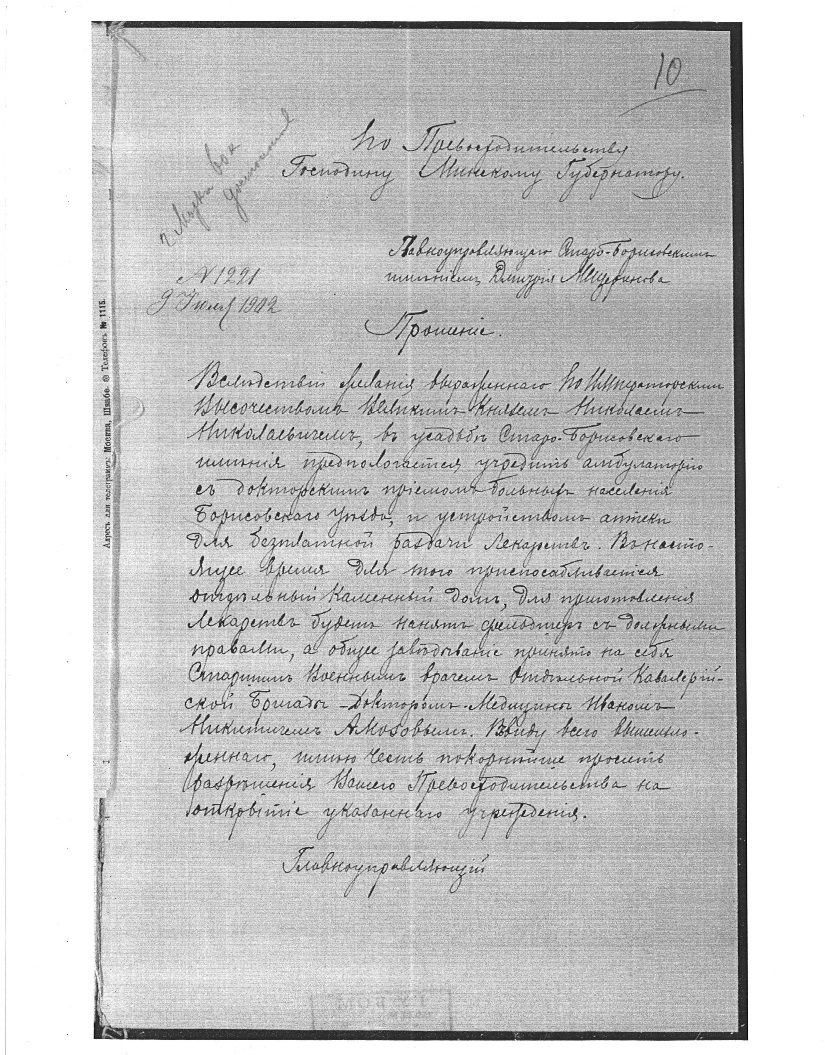 10
Его Превосходительству
Господину Минскому Губернатору.
Главноуправляющаго Старо-Борисовскимъ
имѣніемъ Дмитрія
N 1221
9 Іюля 1902
Прошеніе.
Вслѣдствіи желанія выраженнаго Его Императорскимъ
Высочествомъ Великимъ Княземъ Николаемъ
Николаевичемъ, въ усадьбѣ Старо-Борисовскаго
имѣнія предпологается учредить амбулаторію
съ докторскимъ пріемомъ больныхъ населенія
Борисовскаго Уѣзда, и устройствомъ аптеки
для безплатной раздачи лекарствъ. Въ насто-
ящее время для того приспосабливается
отдѣльный каменный домъ, для приготовленія
лекарствъ будетъ нанятъ фельдшеръ съ должными
правами, а общее завѣдываніе принято на себя
Старшимъ Военнымъ врачемъ Отдѣльной Кавалерій-
ской Бригады - Докторомъ-Медицины Иваномъ
Никитичемъ Амозовымъ. Ввиду всего вышеизло-
женнаго, имѣю честь покорнѣйше просить
разрѣшенія Вашего Превосходительства на
открытіе указаннаго учрежденія.
Главноуправляющій
Адресъ для телеграммъ: Москва, Швабе. Телефонъ № 1115.